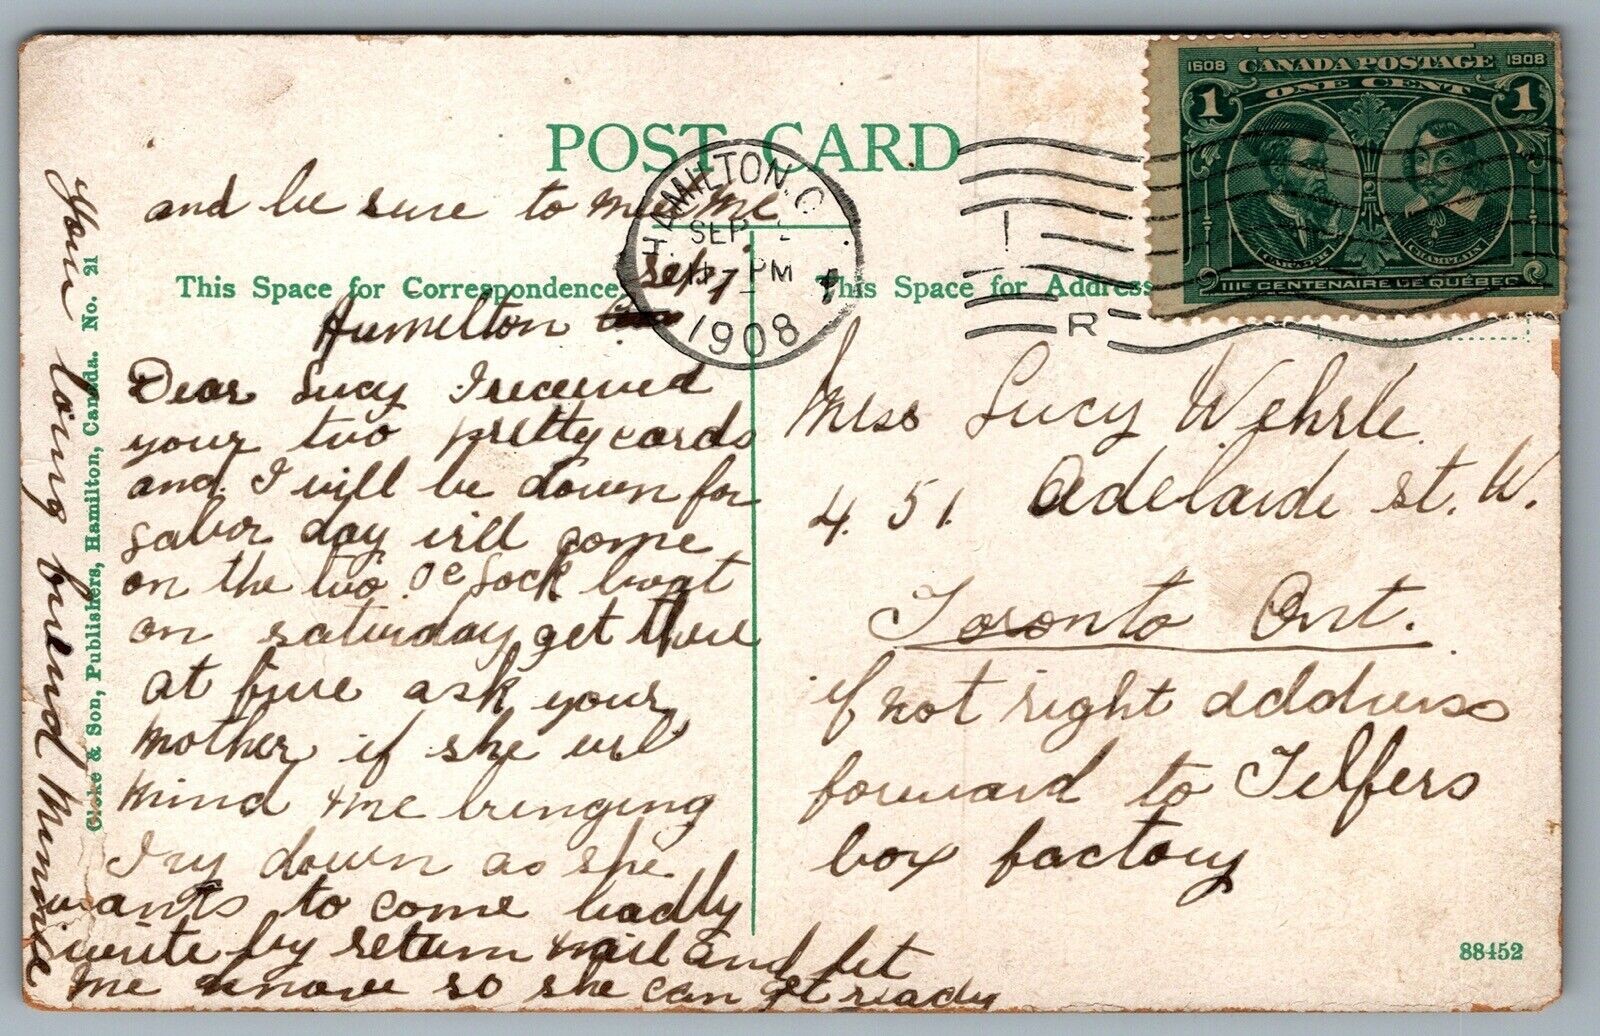 POST CARD
1608 CANADA POSTAGE 1908
1 ONE CENT 1
CARTIER CHAMPLAIN
IIIE CENTENAIRE DE QUÉBEC
HAMILTON, C
SEP
PM
1908
R
This Space for Correspondence
This Space for Address
Sep 1
Hamelton
Dear Lucy I received
your two pretty cards
and I will be down for
Labor day will come
on the two Oc lock boat
on saturday get there
at five ask your
mother if she will
mind me bringing
Ivy down as she
wants to come badly
write by return mail and let
me know so she can get ready
and be sure to meet me
Your loving friend Minnie
Miss Lucy Wehrle.
451. Adelaide st. W.
Toronto Ont.
if not right address
forward to Telfers
box factory
Cloke & Son, Publishers, Hamilton, Canada. No. 21
88452